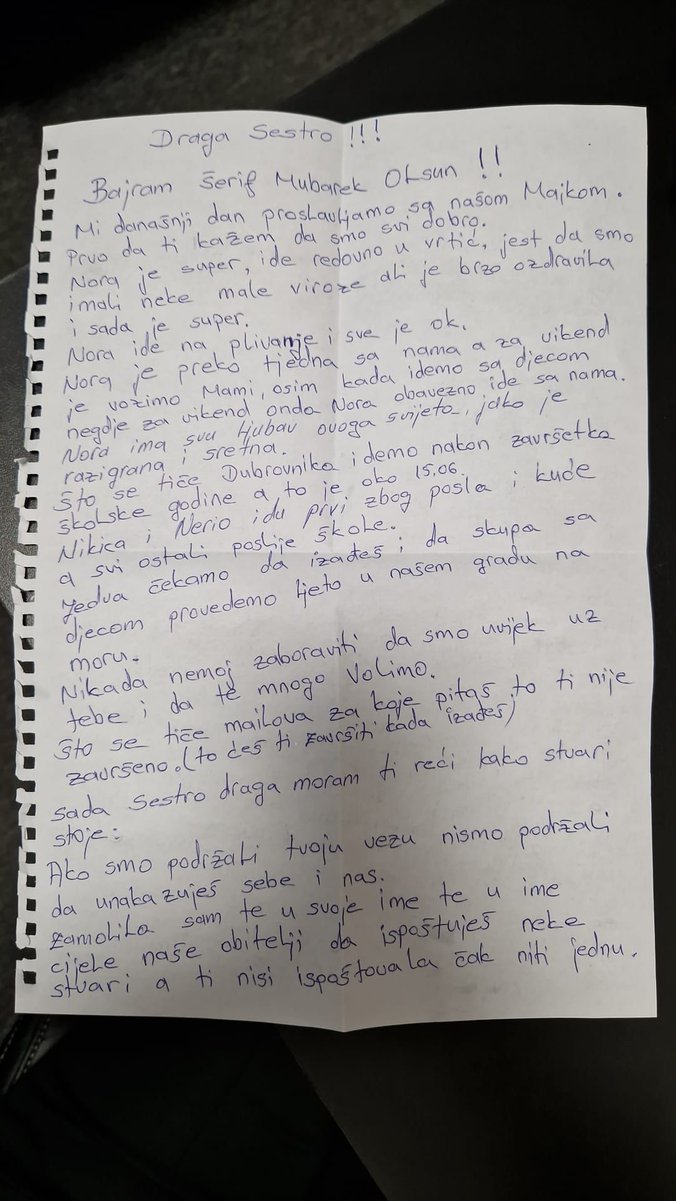 Draga Sestro!!!
Bajram Šerif Mubarek Olsun !!
Mi današnji dan proslavljamo sa našom Majkom.
Prvo da ti kažem da smo svi dobro.
Nora je super, ide redovno u vrtić, jest da smo
imali neke male viroze ali je brzo ozdravila
i sada je super.
Nora ide na plivanje i sve je ok.
Nora je preko tjedna sa nama a za vikend
je vozimo Mami, osim kada idemo sa djecom
negdje za vikend onda Nora obavezno ide sa nama.
Nora ima svu ljubav ovoga svijeta, jako je
razigrana i sretna.
Što se tiče Dubrovnika idemo nakon završetka
školske godine a to je oko 15.06.
Nikica i Nerio idu prvi zbog posla i kuće
a svi ostali poslije škole.
Jedva čekamo da izađeš i da skupa sa
djecom provedemo ljeto u našem gradu na
moru.
Nikada nemoj zaboraviti da smo uvijek uz
tebe i da te mnogo Volimo.
Što se tiče mailova za koje pitaš to ti nije
završeno. (to ćeš ti završiti kada izađeš)
sada Sestro draga moram ti reći kako stvari
stoje:
Ako smo podržali tvoju vezu nismo podržali
da unakazuješ sebe i nas.
Zamolila sam te u svoje ime te u ime
cijele naše obitelji da ispoštuješ neke
stvari a ti nisi ispoštovala čak niti jednu.